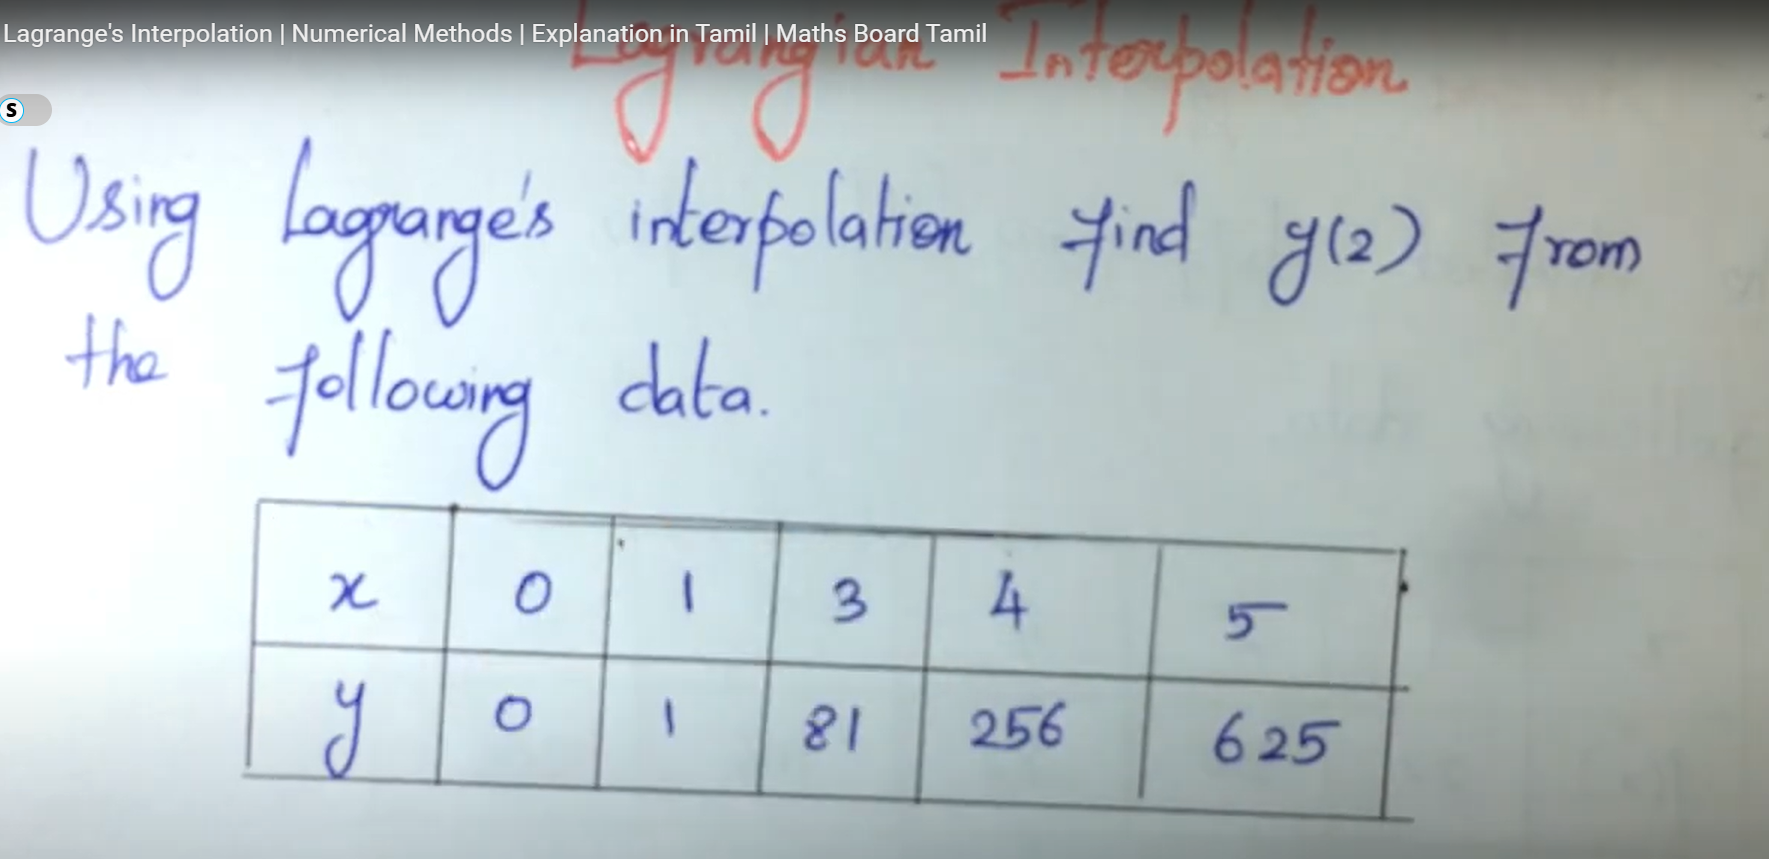 Lagrange's Interpolation | Numerical Methods | Explanation in Tamil | Maths Board Tamil
Lagrangian Interpolation
S
Using Lagrange's interpolation find y(2) from
the following data.
x 0 1 3 4 5
y 0 1 81 256 625